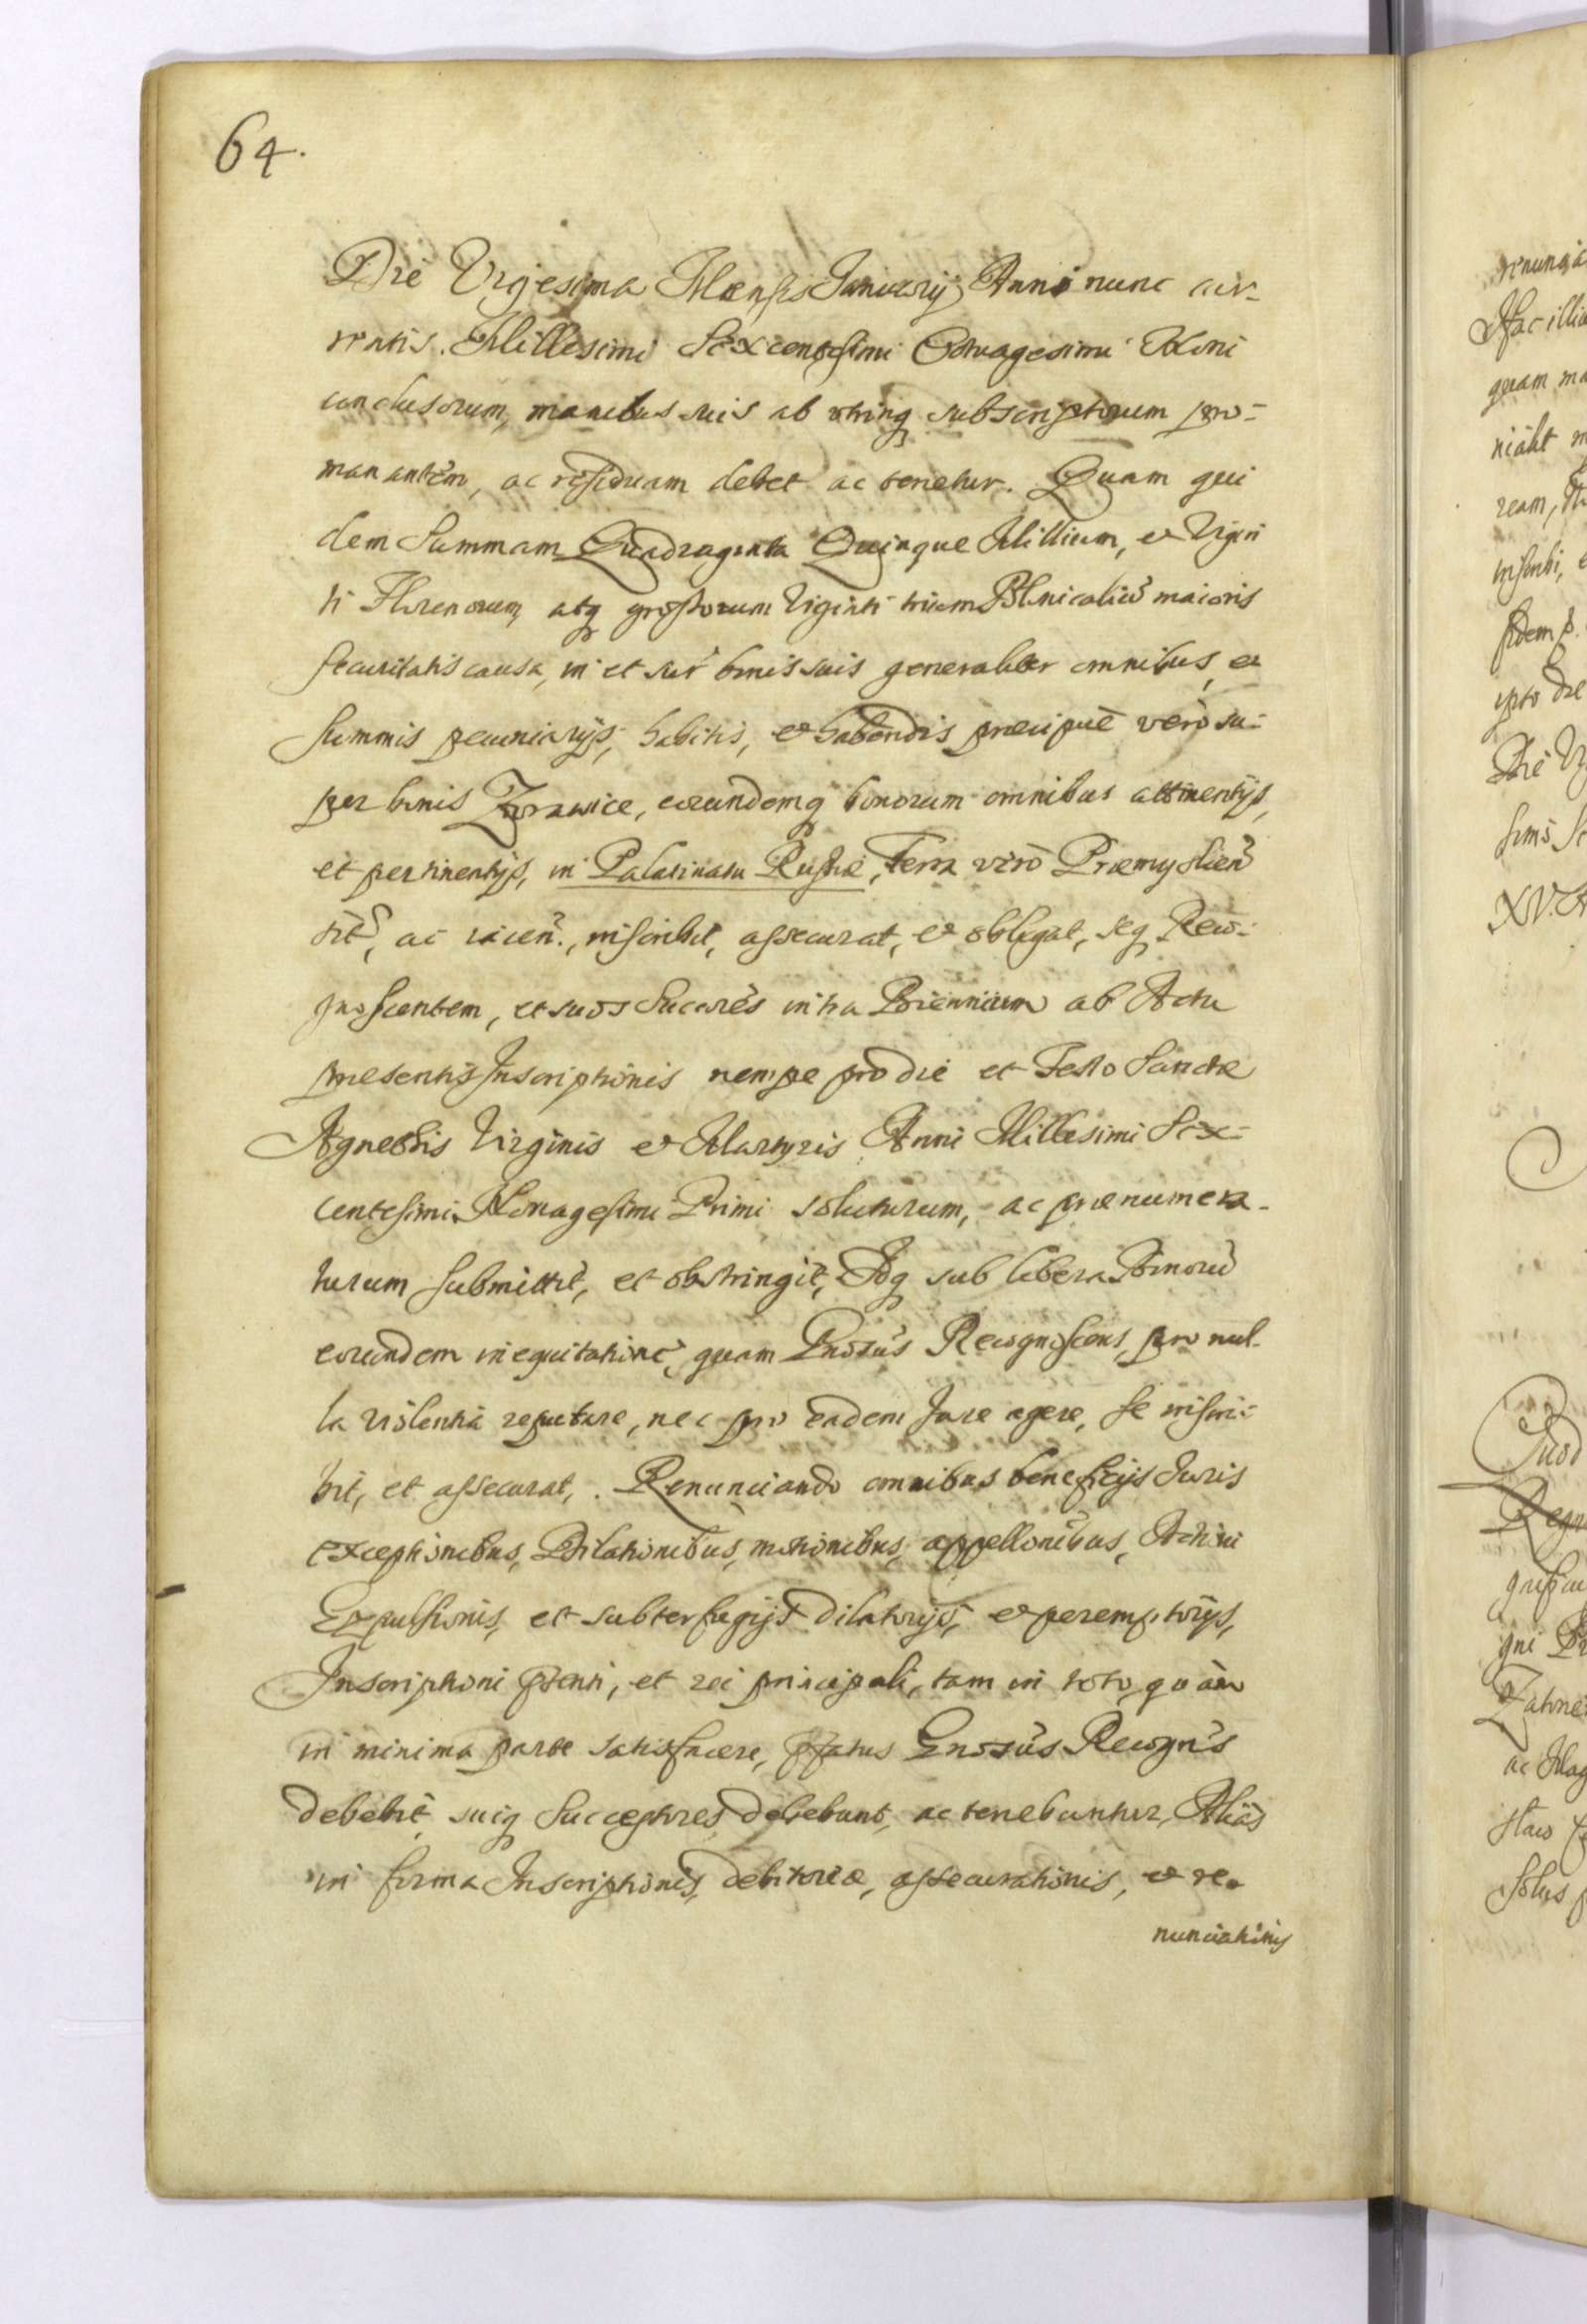 64.
Die Vigesima Mensis Januarij Anni nunc cur-
rentis. Millesimi Sexcentesimi Octuagesimi Noni
conclusorum, manibus suis ab utrinq subscriptorum pro-
manantem, ac residuam debet ac tenetur. Quam qui
dem Summam Quadraginta Quinque Millium, et Vigin
ti Florenorum, atq grossorum Viginti trium Plnicaliũ maioris
securitatis causa, in et suř bonis suis generaliter omnibus, et
summis pecuniarijs, habitis, et habendis præcipuè verò su-
per bonis Zurawice, eorundemq bonorum omnibus attinentijs,
et pertinentijs, in Palatinatu Russiæ, Terra verò Præmyslien̄
sit, ac iacen̄., inscribit, assecurat, et obligat, seq Reco-
gnoscentem, et suos Succres intra Biennium ab Actu
præsentis Inscriptionis nempe pro die et Festo Sanctæ
Agnethis Virginis et Martyris Anni Millesimi Sex-
centesimi Nonagesimi Primi soluturum, ac prænumera-
turum submittit, et obstringit, Idq sub libera Bonorũ
eorundem inequitatione, quam Gnosus Recognoscens, pro nul-
la violentia reputare, nec pro eadem Jure agere, se inscri-
bit, et assecurat, . Renunciando omnibus beneficijs Juris
exceptionibus, Dilationibus, motionibus, appellonibus, Actioni
Expulsionis, et subterfugijs dilatorijs, et peremptorijs,
Inscriptioni pñti, et rei principali, tam in toto, quàm
in minima parte satisfacere, pfatus Gnosus Recogn̄s
debebit, suiq Successores debebunt, ac tenebuntur, Aliàs
in forma Inscriptionis, debitoriæ, assecurationis, et re-
nunciationis